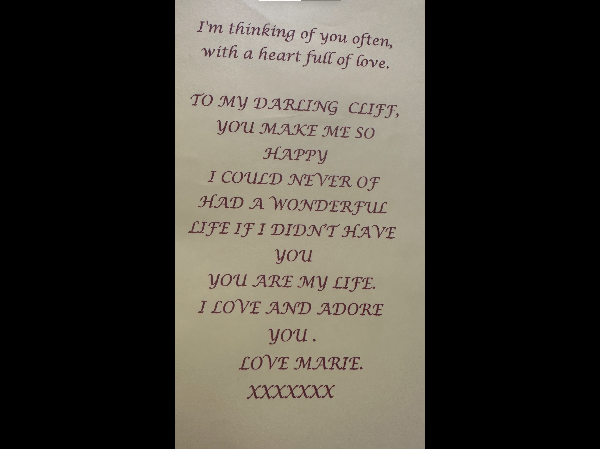 I'm thinking of you often,
with a heart full of love.
TO MY DARLING CLIFF,
YOU MAKE ME SO
HAPPY
I COULD NEVER OF
HAD A WONDERFUL
LIFE IF I DIDN'T HAVE
YOU
YOU ARE MY LIFE.
I LOVE AND ADORE
YOU .
LOVE MARIE.
XXXXXXX